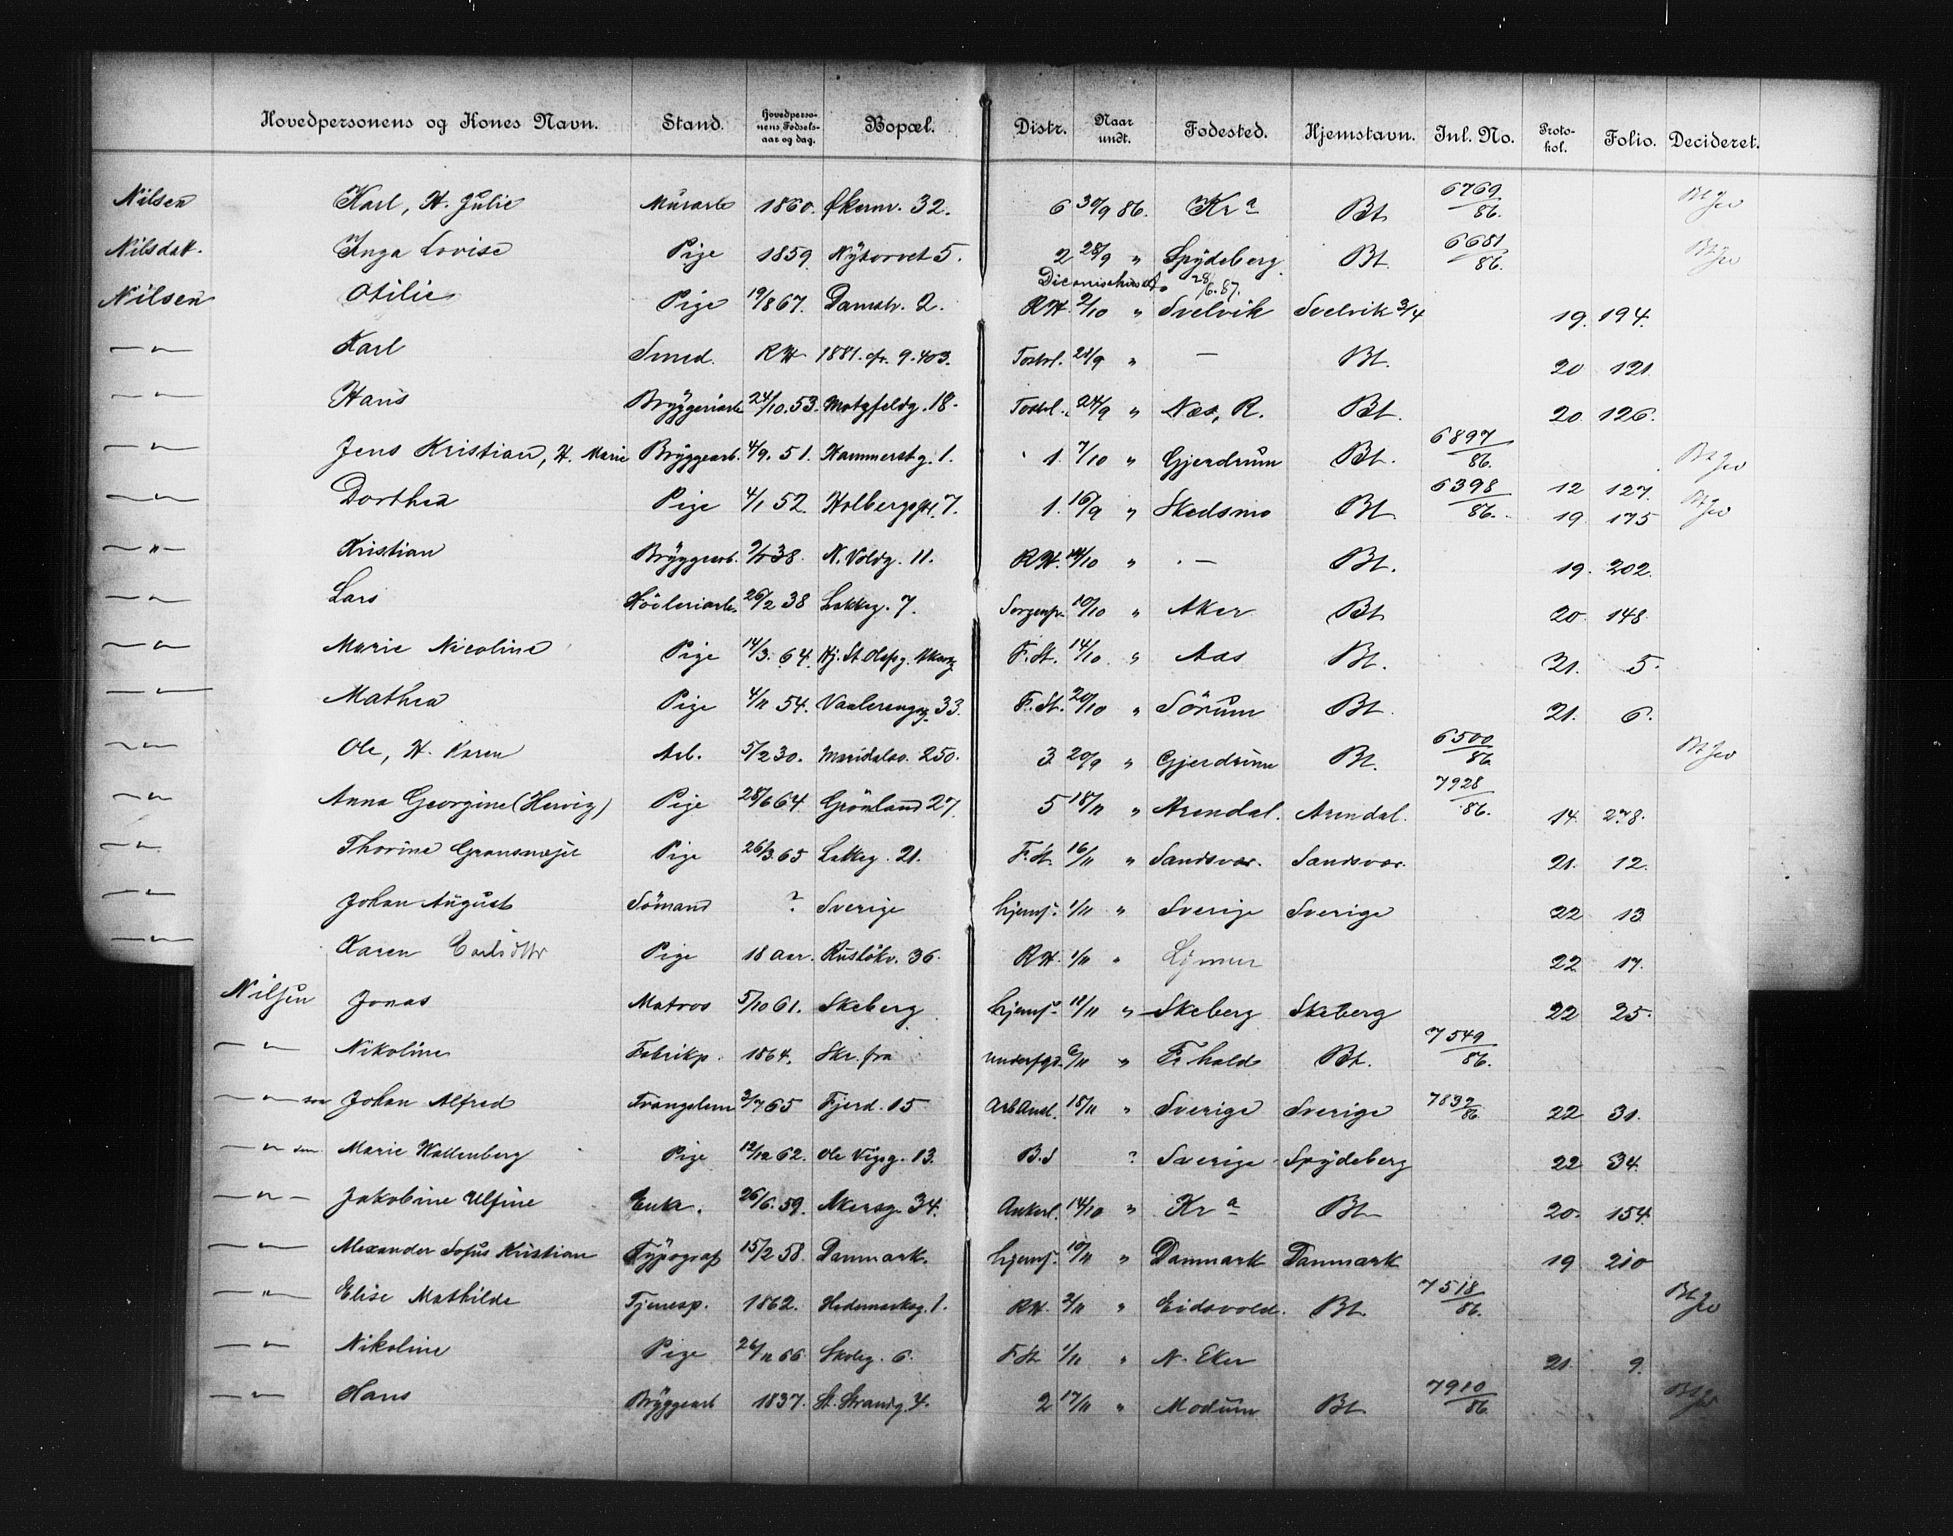 Hovedpersonens og Kones Navn. Stand. Hovedperso-nens Fødsels-aar og dag. Bopæl. Distr. Naar undt. Fødested. Hjemstavn. Inl. No. Proto-kol. Folio. Decideret.
Nilsen Karl, H. Julie Murarb 1860. Økernv. 32. 6 30/9 86. Kra Bt 6769/86.
Nilsdatt. Inga Lovise Pige 1859. Nytorvet 5. 2 28/9 " Spydeberg Bt. 6681/86.
28/6. 87.
Nilsen Otilie Pige 19/8 67. Damstr. 2. RH. 2/10 " Svelvik Svelvik 3/4 19. 194.
— " — Karl Smed. RH 1881. fr. 9. 403. Toxtbl. 21/9 " — Bt. 20 121.
— " — Hans Bryggeriarb 24/10. 53. Motzfeldg. 18. 24/9 " Næs, R. Bt. 20 126.
— " — Jens Kristian, H. Marie Bryggearb. 4/9. 51. Hammerstg. 1. 1. 7/10 " Gjerdrum Bt. 6897/86.
— " — Dorthea Pige 4/1 52. Holbergsgt. 7. 1. 16/9 " Skedsmo Bt 6398/86. 12 127. 19 175
— " — Kristian Bryggearb. 38. N. Voldg. 11. RH. 14/10 " — Bt. 19. 202.
— " — Lars Høvleriarb. 26/2 38 Lakkeg. 7. Sorgenfr. 10/10 " Aker Bt 20. 148.
— " — Marie Nicoline Pige 14/3. 64. Hj. St Olafsg. Akersg F. St. 14/10 " Aas Bt. 21. 5.
— " — Mathea Pige 4/11 54. Vaalerengg. 33. F. St. 20/10 " Sörum Bt. 21. 6.
— " — Ole, H. Karen Arb. 5/2 30. Maridalsv. 250. 3. 20/9 " Gjerdrum Bt. 6500/86
— " — Anna Georgine (Hervig) Pige 28/6 64. Grönland 27. 5 18/11 " Arendal. Arendal. 7928/86. 14. 278.
— " — Thorine Pige 26/3. 65 Lakkeg. 21. F. St. 16/11 " Sandsvær. Sandsvær. 21. 12.
— " — Johan August Sömand ? Sverige hjemf. 1/11 " Sverige Sverige 22 13
— " — Karen Carlsdttr Pige 18 aar. Rusløkv. 36. RH. 1/11 " 22 17.
Nilsen Jonas Matros 5/10 61. Skeberg hjemf. 11/11 " Skeberg Skeberg 22 25.
— " — Nikoline Fabrikp. 1864. Skr. fra 6/11 " Fr. hald Bt. 7549/86.
— " — son Johan Alfred Tvangslem 3/7 65 Fjerd. 15 Arb Anst. 18/11 " Sverige Sverige 7832/86 22 31.
— " — sen Marie Wallenberg Pige 12/12 62. Ole Vigsg. 13. B. S ? Sverige Spydeberg 22 34.
— " — Jakobine Ulfine Enke. 26/6. 59. Akersg. 34. Ankerl. 14/10 " Kra Bt 20. 154.
— " — Alexander Sofus Kristian Typograf 15/2 58. Danmark. hjemf. 10/11 " Danmark Danmark 19 210
— " — Elise Mathilde Tjenesp. 1862. Hedemarksg. 1. RH. 2/11 " Eidsvold. Bt. 7518/86.
— " — Nikoline Pige 26/11 66 Skoleg. 6. F. St 1/11 " N. Eker 21. 9.
— " — Hans Bryggearb 1837. St. Strandg. 4. 2 17/11 " Modum Bt 7910/86.